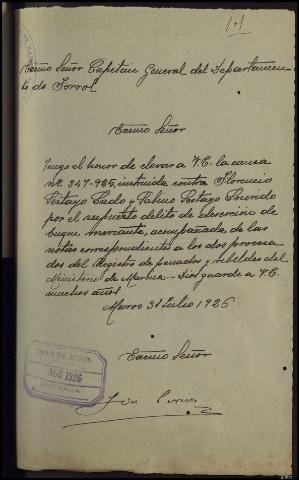 Excmo Señor Capitán General del Departamen-
to de Ferrol
Excmo Señor
Tengo el honor de elevar a V.E. la causa
nº 347-925, instruida contra Florencio
y Sabino
por el supuesto delito de deserción de
buque mercante, acompañada de las
notas correspondientes a los dos procesa
dos del Registro de penados y rebeldes del
Ministerio de Marina.- Dios guarde a V.E.
muchos años
Muros 31 Julio 1926
Excmo Señor
José
AGO 1926
ENTRADA